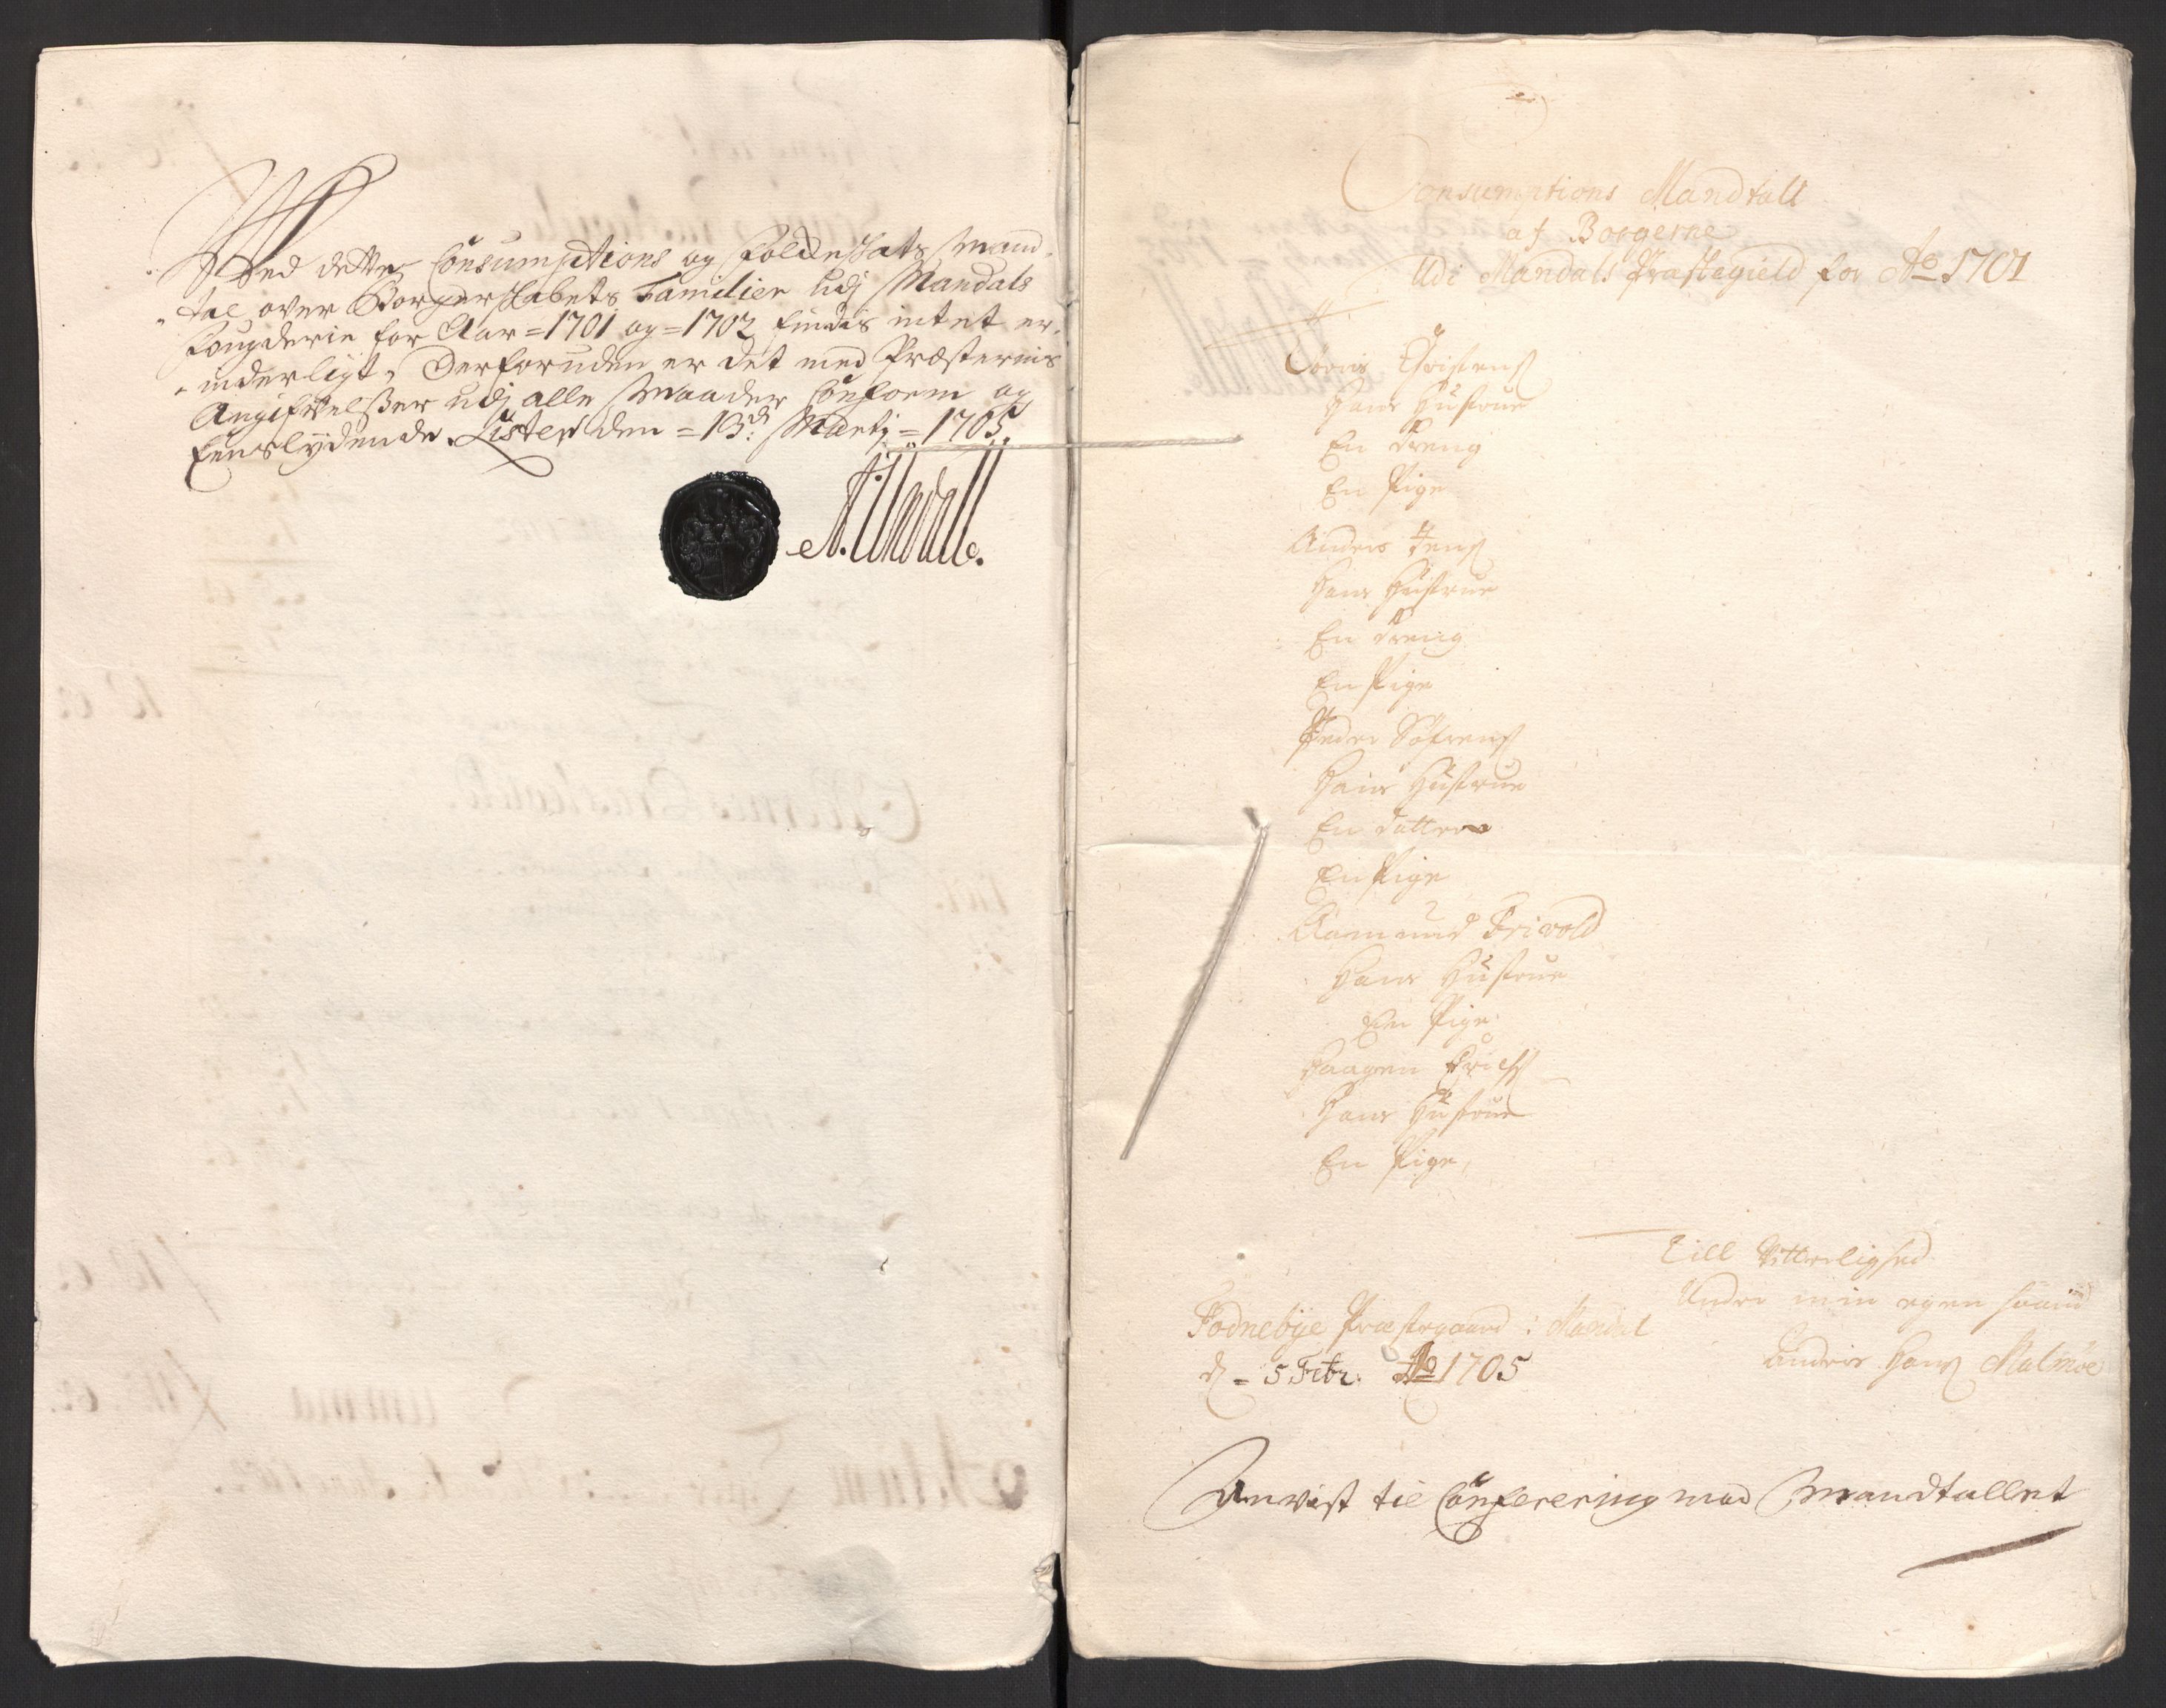 Ved dette Consumptions og Folcheskats Mand-
tal over Borgerskabets Familier udj Mandals
Fougderie for Aar =1701 og =1702 findis intet er-
inderligt, Derforuden er det med Præsternis
Angifvelsser udj alle Maader Conform og
Eenslydende. Lister den =13de: Martj =1705.
Consumptions Mandtall
af Borgerne
Udi Mandals Præstegield for Ao 1701
Christens
Hans Hüstrue
En dreng
En Pige
Anders Jens
Hans Hüstrue
En dreng
En Pige
Peder Søfrens
Hans Hüstrue
En datter
En Pige
Aamund Trivold
Hans Hüstrue
En Pige
Haagen Erichs
Hans Hüstrue
En Pige,
Till Vitterlighed
Under min egen haand
Fodnebye Præstegaard: Mandal
Anders Hans Malmøe
d = 5 Febr. Ao 1705
Anvist til Conferering med Mandtallet